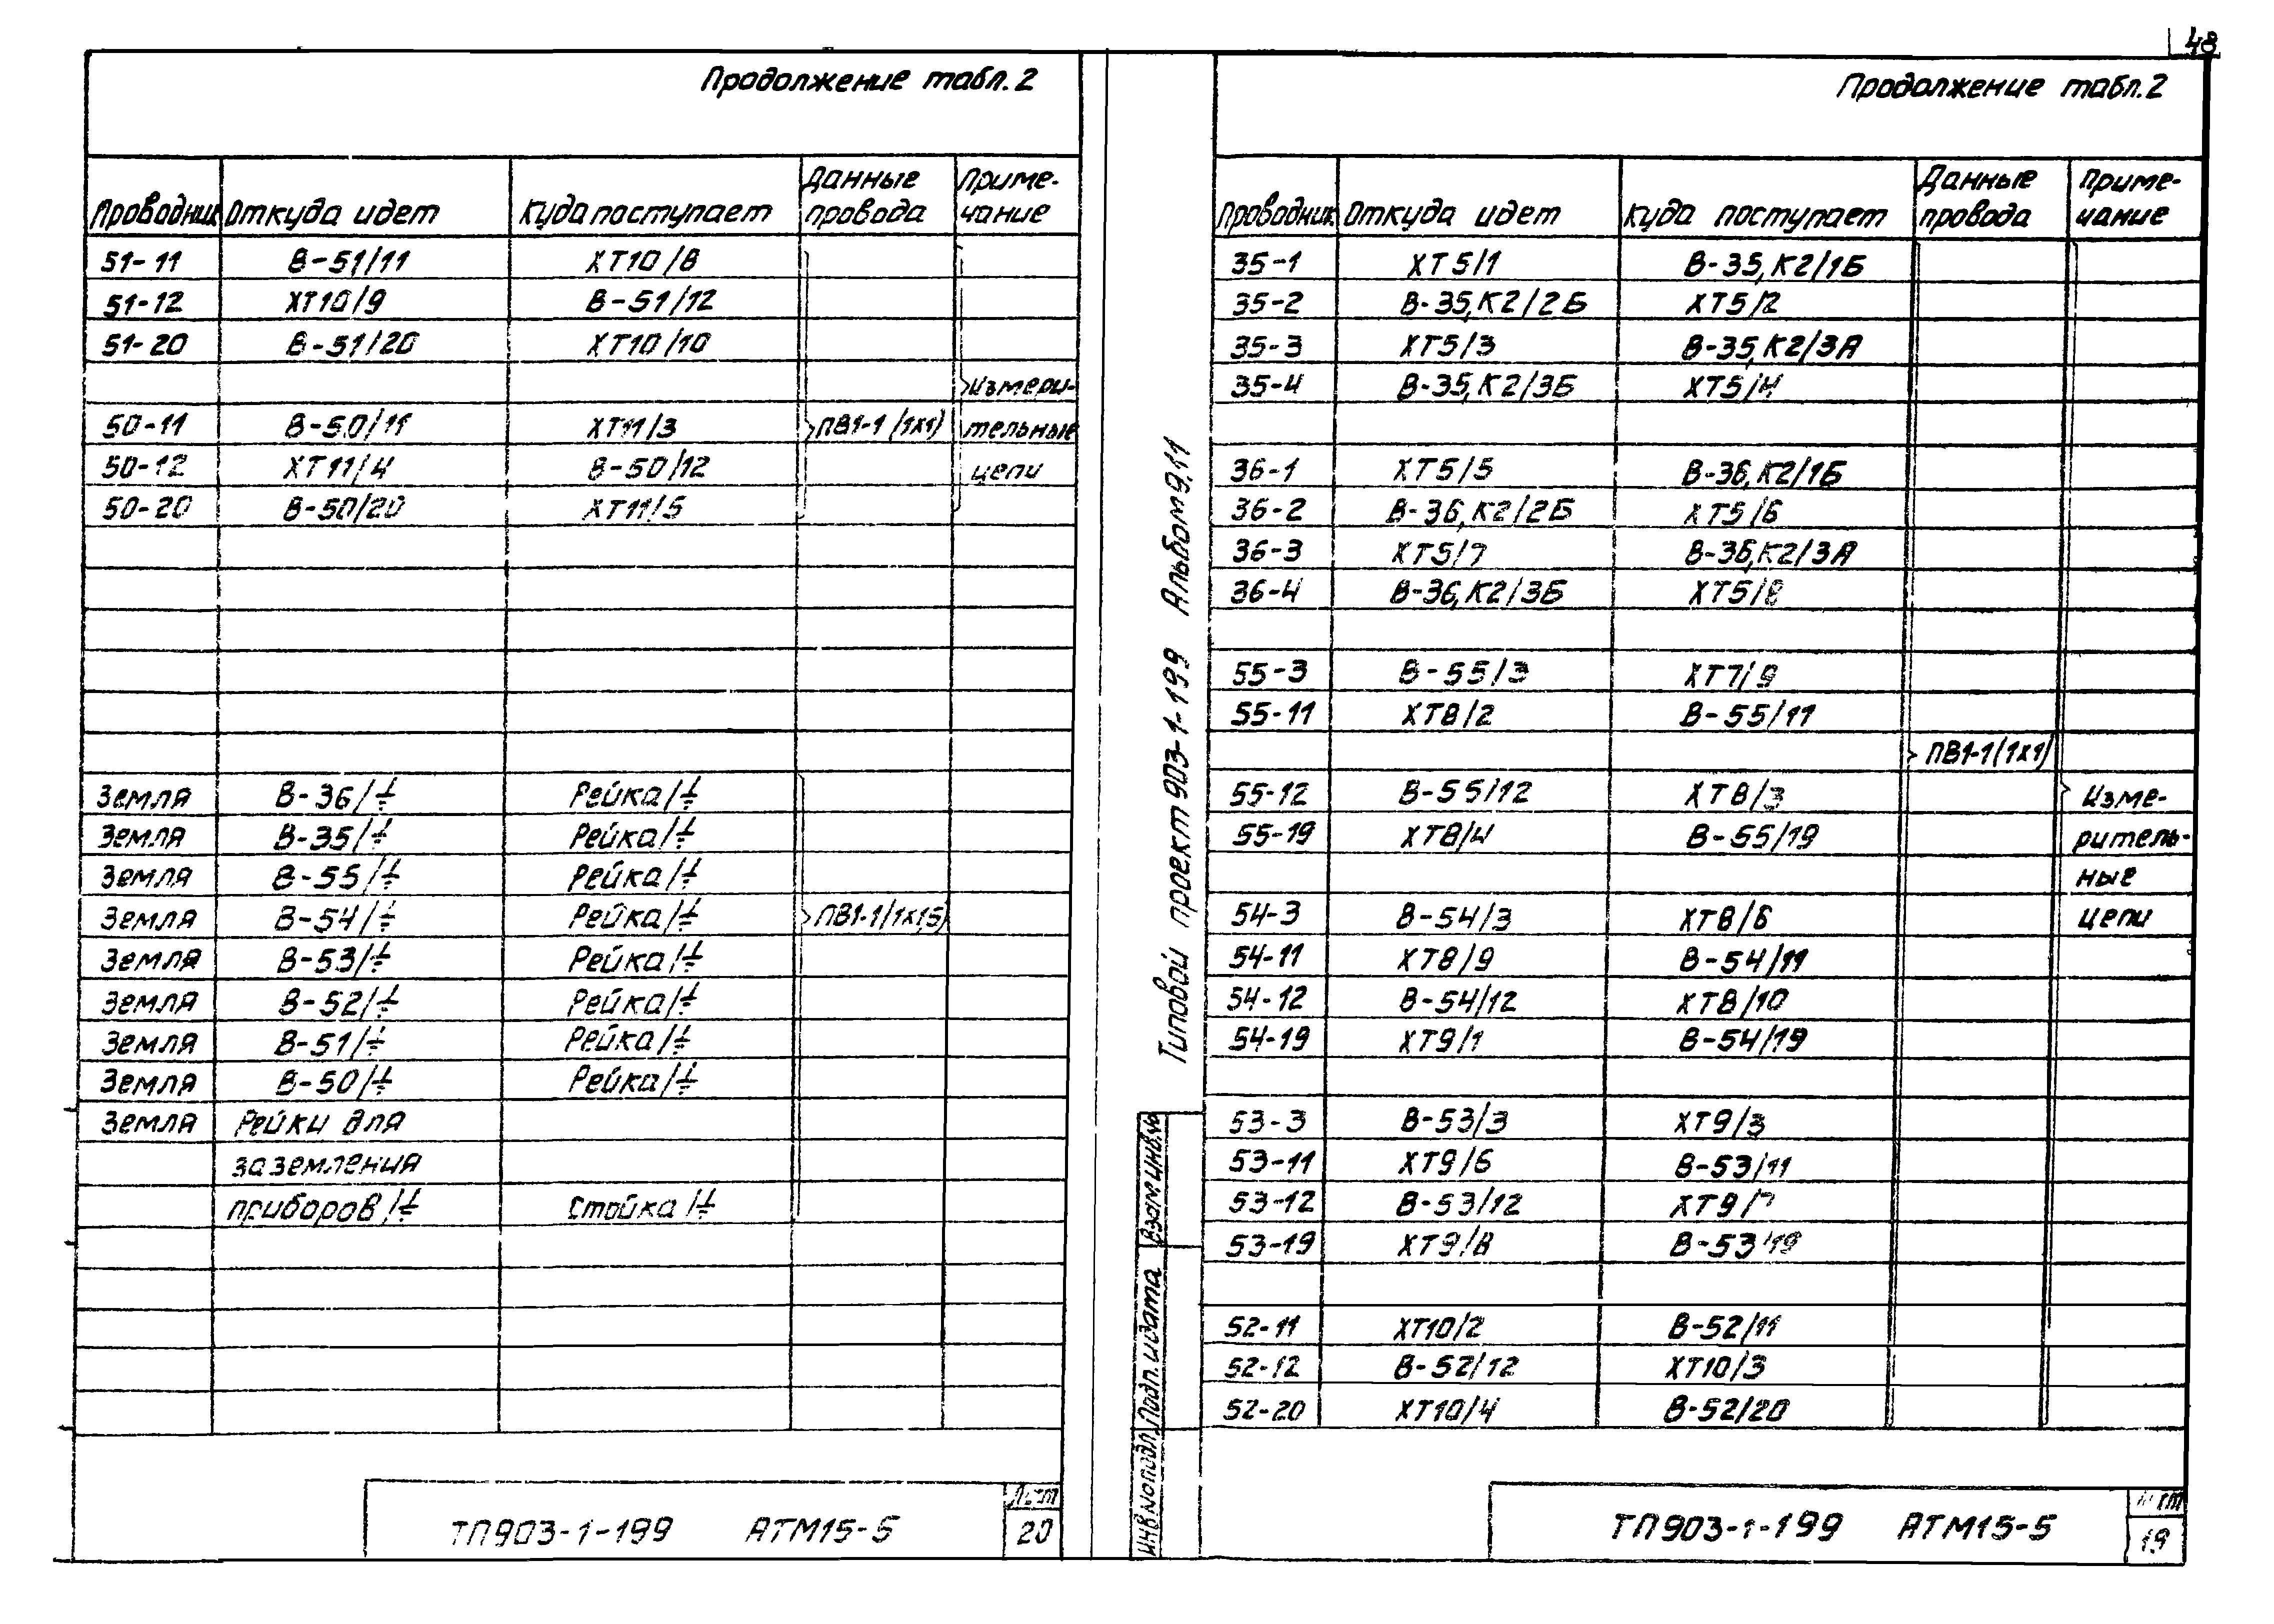 48
Продолжение табл. 2
Проводник Откуда идет Куда поступает Данные провода Примечание
51-11 В-51/11 ХТ10/8
51-12 ХТ10/9 В-51/12
51-20 В-51/20 ХТ10/10
Измери-
50-11 В-50/11 ХТ11/3 ПВ1-1 (1х1) тельные
50-12 ХТ11/4 В-50/12 цепи
50-20 В-50/20 ХТ11/5
Земля В-36/⏚ Рейка/⏚
Земля В-35/⏚ Рейка/⏚
Земля В-55/⏚ Рейка/⏚
Земля В-54/⏚ Рейка/⏚ ПВ1-1(1х1,5)
Земля В-53/⏚ Рейка/⏚
Земля В-52/⏚ Рейка/⏚
Земля В-51/⏚ Рейка/⏚
Земля В-50/⏚ Рейка/⏚
Земля Рейки для
заземления
приборов/⏚ Стойка/⏚
ТП903-1-199 АТМ15-5
Лист
20
Типовой проект 903-1-199 Альбом 9.11
Взам.инв.№
Подп. и дата
Инв.№ подл.
Продолжение табл. 2
Проводник Откуда идет Куда поступает Данные провода Примечание
35-1 ХТ5/1 В-35,К2/1Б
35-2 В-35,К2/2Б ХТ5/2
35-3 ХТ5/3 В-35,К2/3А
35-4 В-35,К2/3Б ХТ5/4
36-1 ХТ5/5 В-36,К2/1Б
36-2 В-36,К2/2Б ХТ5/6
36-3 ХТ5/7 В-36,К2/3А
36-4 В-36,К2/3Б ХТ5/8
55-3 В-55/3 ХТ7/9
55-11 ХТ8/2 В-55/11
ПВ1-1(1х1)
55-12 В-55/12 ХТ8/3 Изме-
55-19 ХТ8/4 В-55/19 ритель-
ные
54-3 В-54/3 ХТ8/6 цепи
54-11 ХТ8/9 В-54/11
54-12 В-54/12 ХТ8/10
54-19 ХТ9/1 В-54/19
53-3 В-53/3 ХТ9/3
53-11 ХТ9/6 В-53/11
53-12 В-53/12 ХТ9/7
53-19 ХТ9/8 В-53/19
52-11 ХТ10/2 В-52/11
52-12 В-52/12 ХТ10/3
52-20 ХТ10/4 В-52/20
ТП903-1-199 АТМ15-5
Лист
19